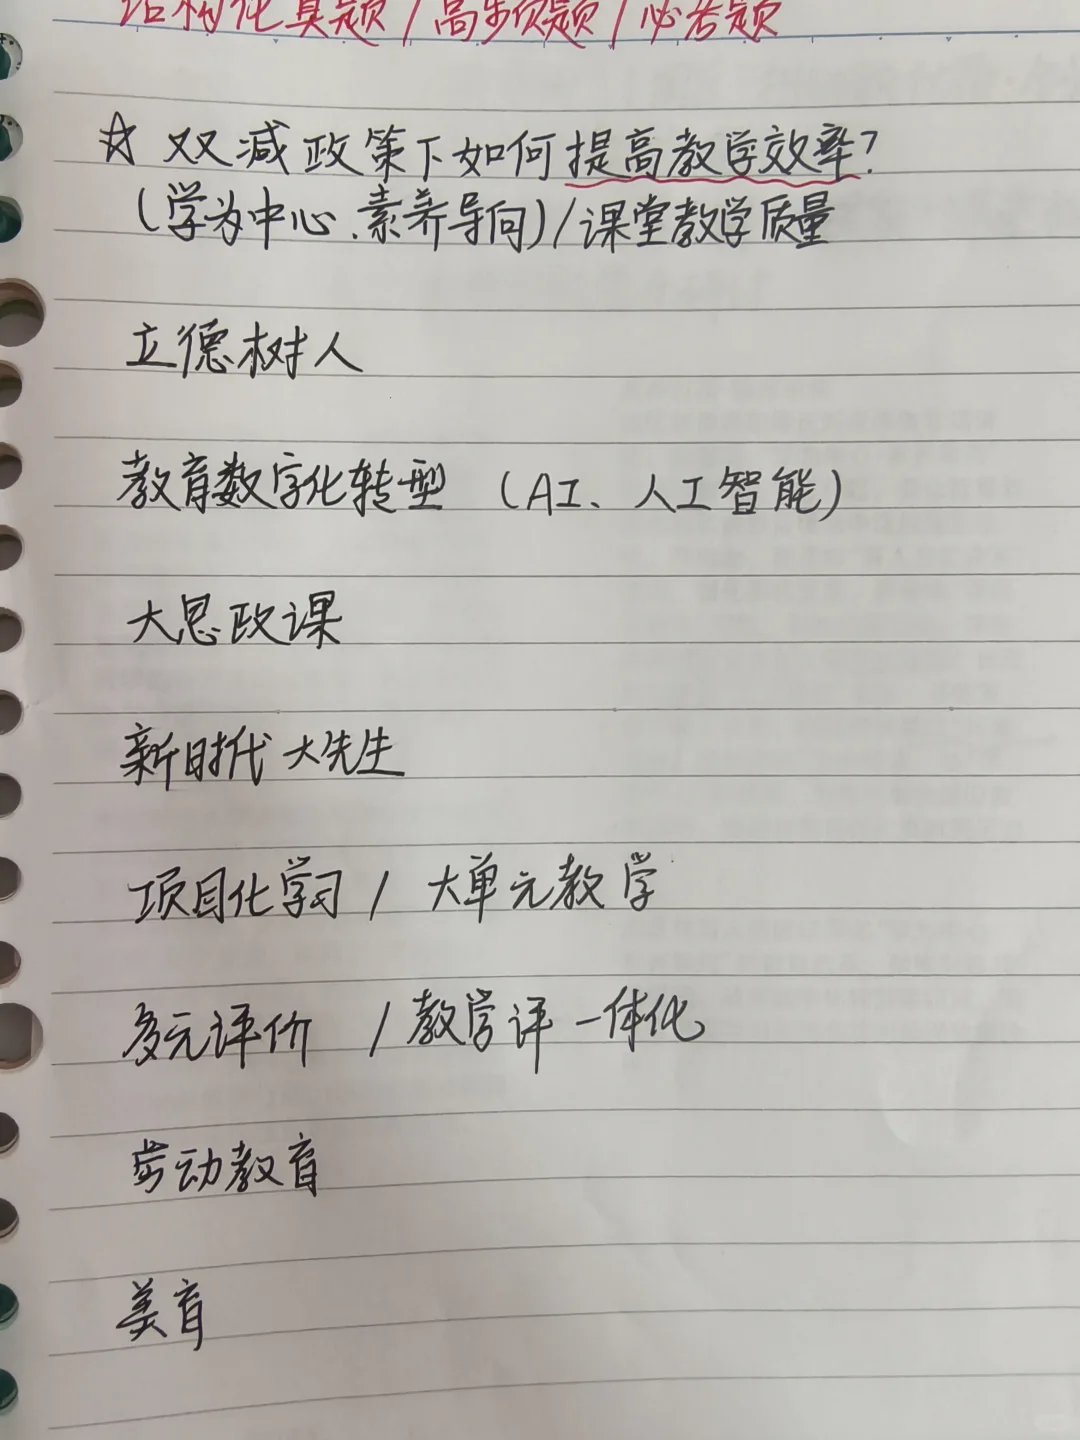 结构化真题/高频题/必考题
☆ 双减政策下如何提高教学效率?
(学为中心、素养导向)/课堂教学质量
立德树人
教育数字化转型 (AI、人工智能)
大思政课
新时代大先生
项目化学习 / 大单元教学
多元评价 / 教学评一体化
劳动教育
美育